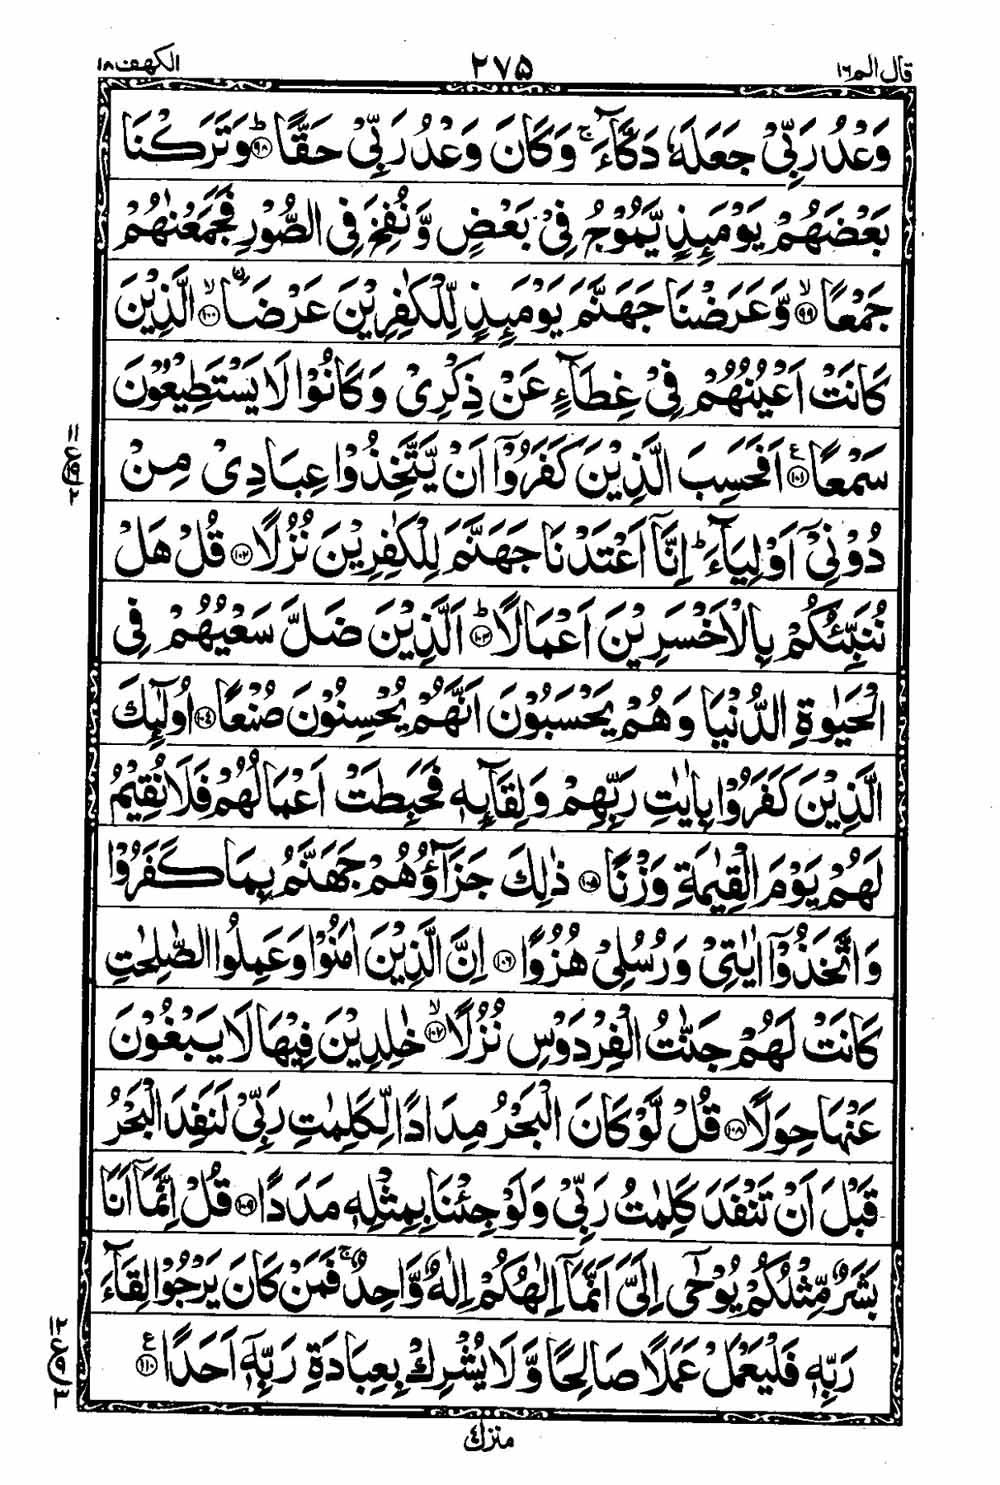 قال الم ١٦ ٢٧٥ الكهف ١٨
وَعْدُ رَبِّيْ جَعَلَهٗ دَكَّآءَ ۚ وَكَانَ وَعْدُ رَبِّيْ حَقًّا ؕ‏﴿۹۸﴾ وَتَرَكْنَا
بَعْضَهُمْ يَوْمَئِذٍ يَّمُوْجُ فِيْ بَعْضٍ وَّ نُفِخَ فِي الصُّوْرِ فَجَمَعْنٰهُمْ
جَمْعًا ۙ‏﴿۹۹﴾ وَّ عَرَضْنَا جَهَنَّمَ يَوْمَئِذٍ لِّلْكٰفِرِيْنَ عَرْضَا ۙ‏﴿۱۰۰﴾ الَّذِيْنَ
كَانَتْ اَعْيُنُهُمْ فِيْ غِطَآءٍ عَنْ ذِكْرِيْ وَ كَانُوْا لَا يَسْتَطِيْعُوْنَ
سَمْعًا ‏﴿۱۰۱﴾ ع اَفَحَسِبَ الَّذِيْنَ كَفَرُوْۤا اَنْ يَّتَّخِذُوْا عِبَادِيْ مِنْ
دُوْنِيْۤ اَوْلِيَآءَ ؕ اِنَّاۤ اَعْتَدْنَا جَهَنَّمَ لِلْكٰفِرِيْنَ نُزُلًا ‏﴿۱۰۲﴾ قُلْ هَلْ
نُنَبِّئُكُمْ بِالْاَخْسَرِيْنَ اَعْمَالًا ؕ‏﴿۱۰۳﴾ اَلَّذِيْنَ ضَلَّ سَعْيُهُمْ فِي
الْحَيٰوةِ الدُّنْيَا وَ هُمْ يَحْسَبُوْنَ اَنَّهُمْ يُحْسِنُوْنَ صُنْعًا ‏﴿۱۰۴﴾ اُولٰٓئِكَ
الَّذِيْنَ كَفَرُوْا بِاٰيٰتِ رَبِّهِمْ وَ لِقَآئِهٖ فَحَبِطَتْ اَعْمَالُهُمْ فَلَا نُقِيْمُ
لَهُمْ يَوْمَ الْقِيٰمَةِ وَزْنًا ‏﴿۱۰۵﴾ ذٰلِكَ جَزَآؤُهُمْ جَهَنَّمُ بِمَا كَفَرُوْا
وَ اتَّخَذُوْۤا اٰيٰتِيْ وَ رُسُلِيْ هُزُوًا ‏﴿۱۰۶﴾ اِنَّ الَّذِيْنَ اٰمَنُوْا وَ عَمِلُوا الصّٰلِحٰتِ
كَانَتْ لَهُمْ جَنّٰتُ الْفِرْدَوْسِ نُزُلًا ۙ‏﴿۱۰۷﴾ خٰلِدِيْنَ فِيْهَا لَا يَبْغُوْنَ
عَنْهَا حِوَلًا ‏﴿۱۰۸﴾ قُلْ لَّوْ كَانَ الْبَحْرُ مِدَادًا لِّكَلِمٰتِ رَبِّيْ لَنَفِدَ الْبَحْرُ
قَبْلَ اَنْ تَنْفَدَ كَلِمٰتُ رَبِّيْ وَ لَوْ جِئْنَا بِمِثْلِهٖ مَدَدًا ‏﴿۱۰۹﴾ قُلْ اِنَّمَاۤ اَنَا
بَشَرٌ مِّثْلُكُمْ يُوْحٰۤى اِلَيَّ اَنَّمَاۤ اِلٰهُكُمْ اِلٰهٌ وَّاحِدٌ ۚ فَمَنْ كَانَ يَرْجُوْا لِقَآءَ
رَبِّهٖ فَلْيَعْمَلْ عَمَلًا صَالِحًا وَّ لَا يُشْرِكْ بِعِبَادَةِ رَبِّهٖۤ اَحَدًا ‏﴿۱۱۰﴾ ع
منزل ٤